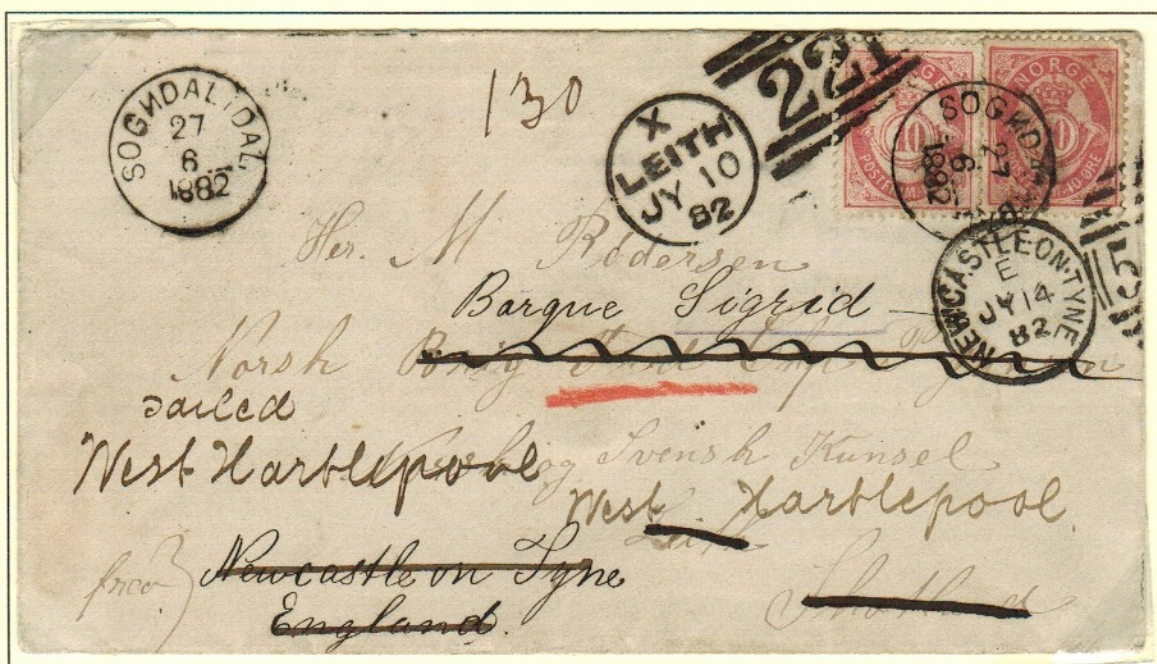 SOGNDALIDAL
27
6
1882
130
X
LEITH
JY 10
82
221
NORGE
10
POSTFRIM
NORGE
10
10 ØRE
SOGNDAL
27
6
1882
NEWCASTLE-ON-TYNE
E
JY 14
82
Her. M Pedersen
Barque Sigrid
Norsk Brig
sailed
West Hartlepool
og Svensk Kunsel
West Hartlepool
Leith
frco
Newcastle on Tyne
England.